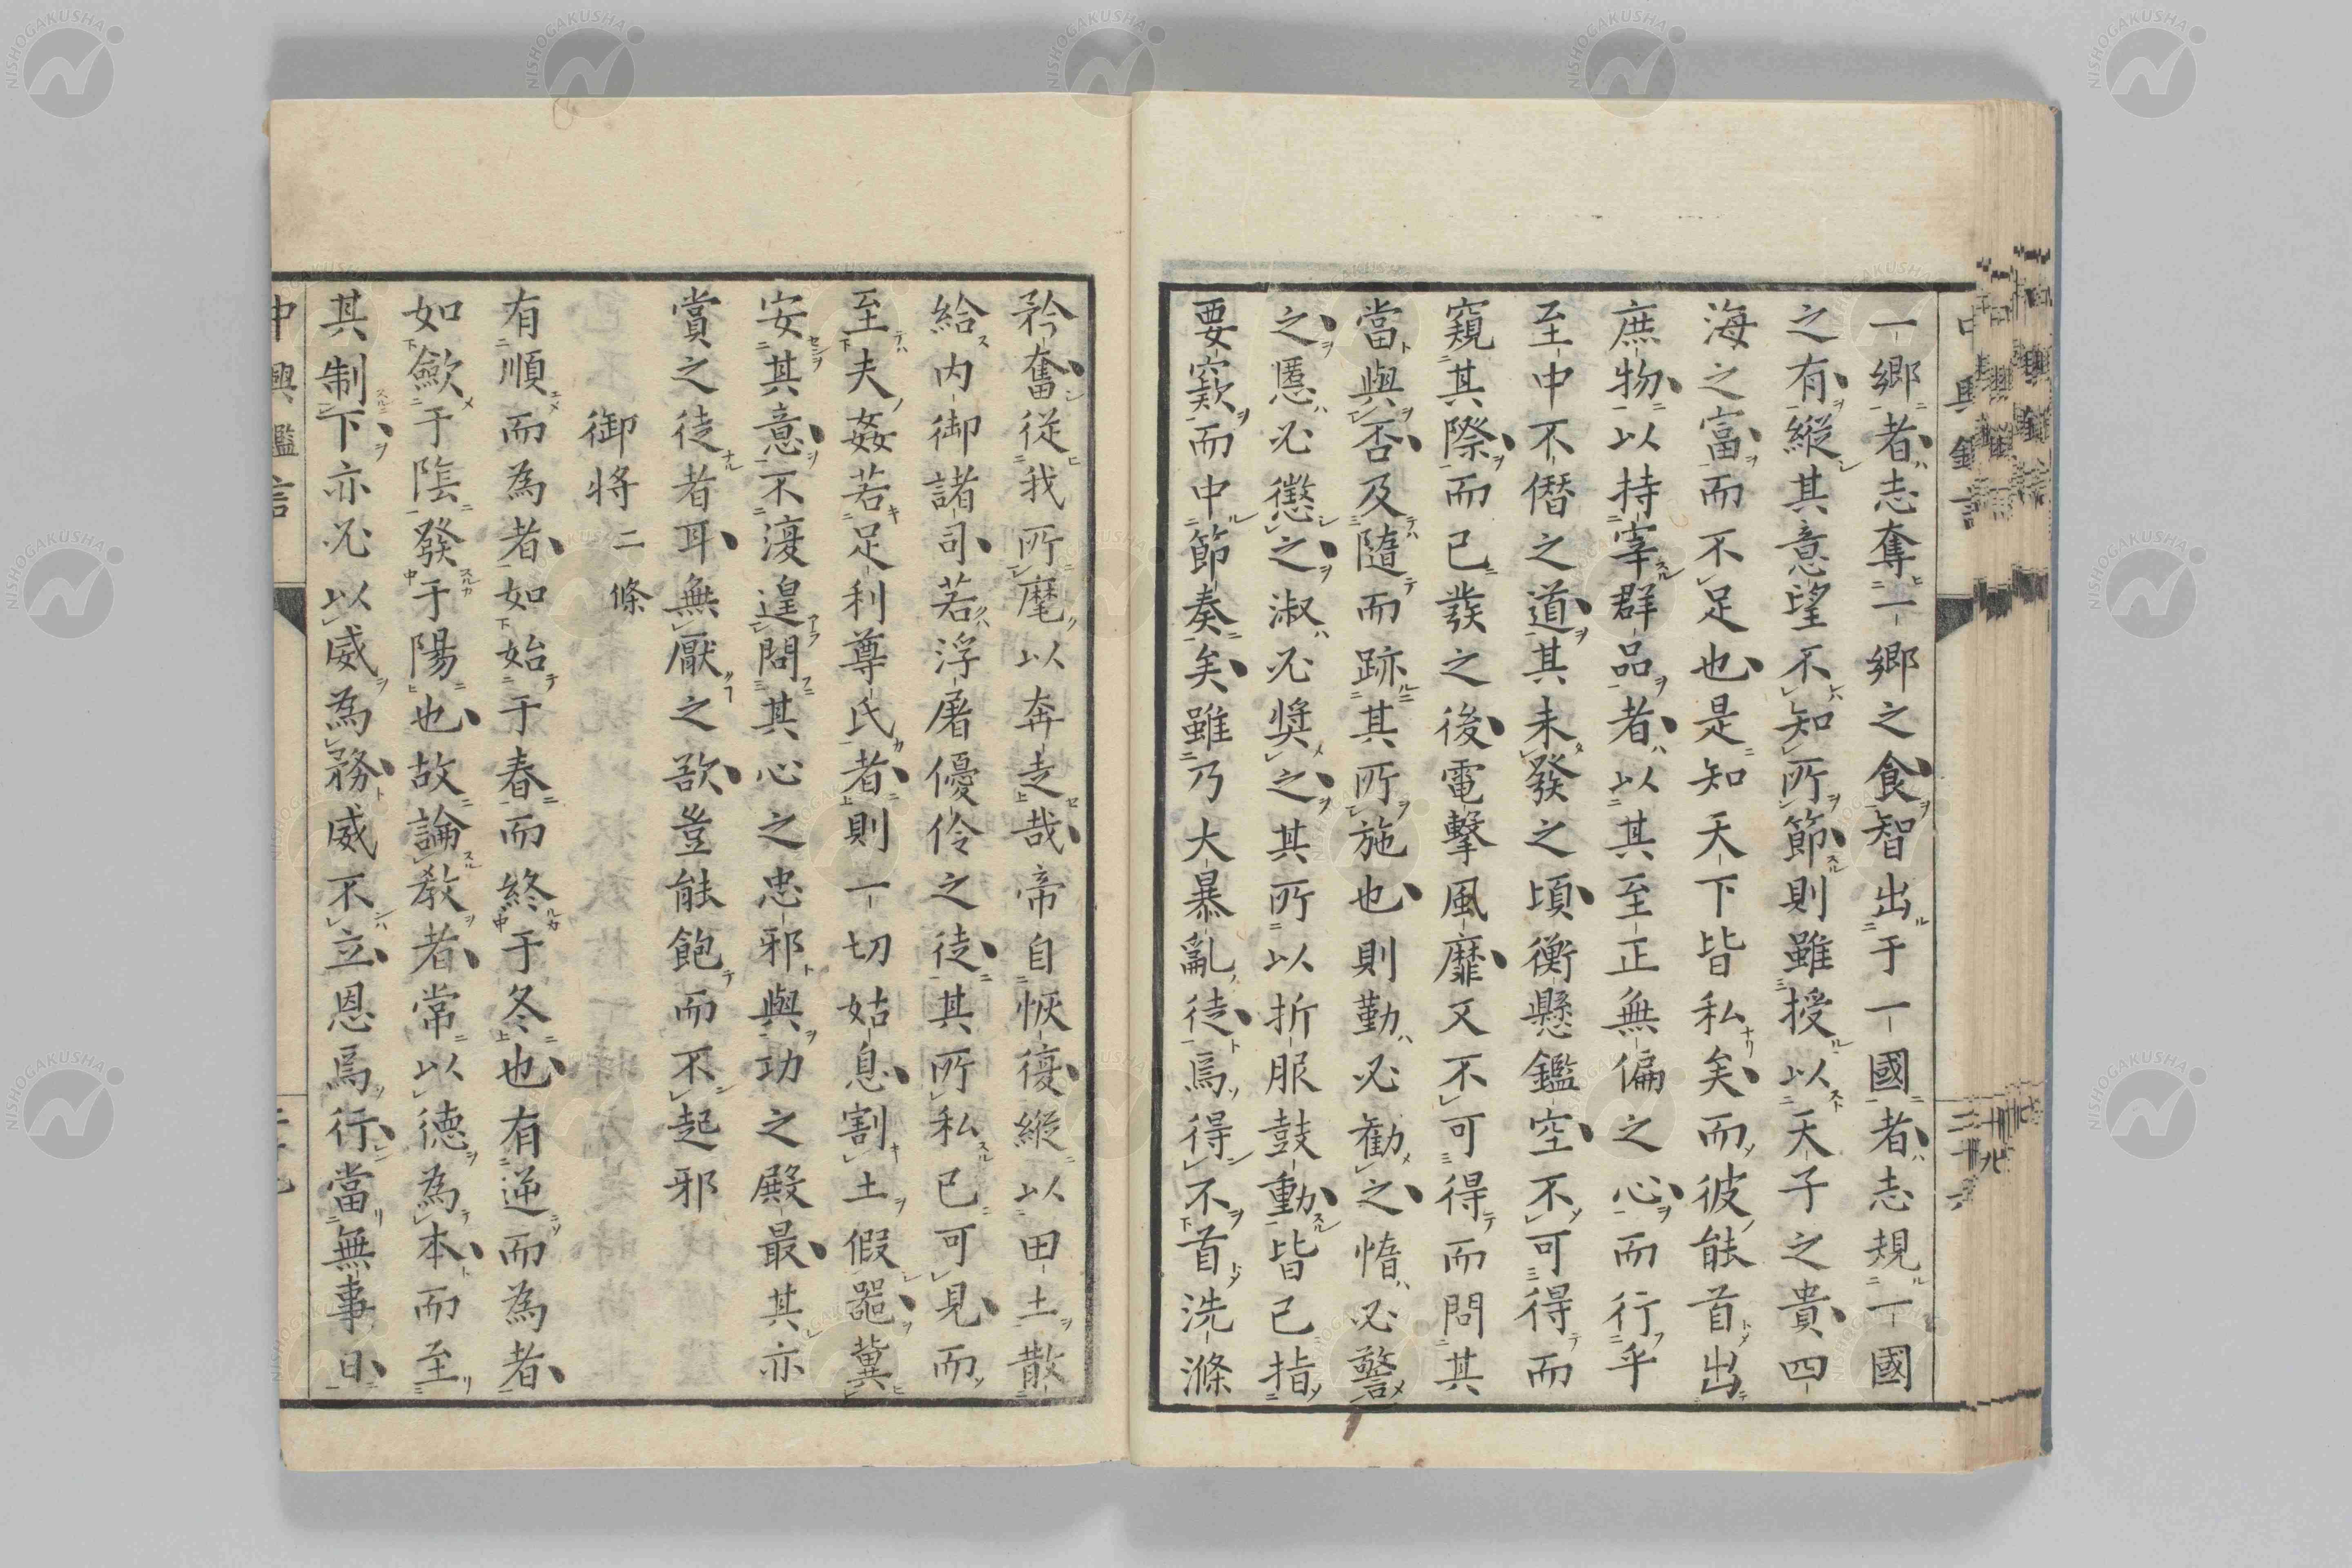 一鄉者志奪一鄉之食智出于一國者志規一國
之有縱其意望不知所節則雖授以天子之貴四
海之富而不足也是知天下皆私矣而彼能首出
庶物以持宰群品者以其至正無偏之心而行乎
至中不僭之道其未發之頃衡懸鑑空不可得而
窺其際而已發之後電擊風靡又不可得而問其
當與否及隨而跡其所施也則勤必勸之惰必警
之慝必懲之淑必奬之其所以折服鼓動皆已指
要窾而中節奏矣雖乃大暴亂徒焉得不首洗滌
矜奮從我所麾以奔走哉帝自恢復縱以田土散
給內御諸司若浮屠優伶之徒其所私已可見而
至夫姦若足利尊氏者則一切姑息割土假噐冀
安其意不復遑問其心之忠邪與功之殿最其亦
賞之徒者耳無厭之欲豈能飽而不起邪
御將二條
有順而為者如始于春而終于冬也有逆而為者
如歛于陰發于陽也故論教者常以德為本而至
其制下亦必以威為務威不立恩焉行當無事日
中興鑑言
NISHOGAKUSHA